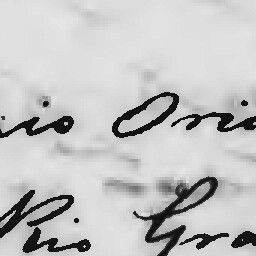 io Orio
Rio Gra